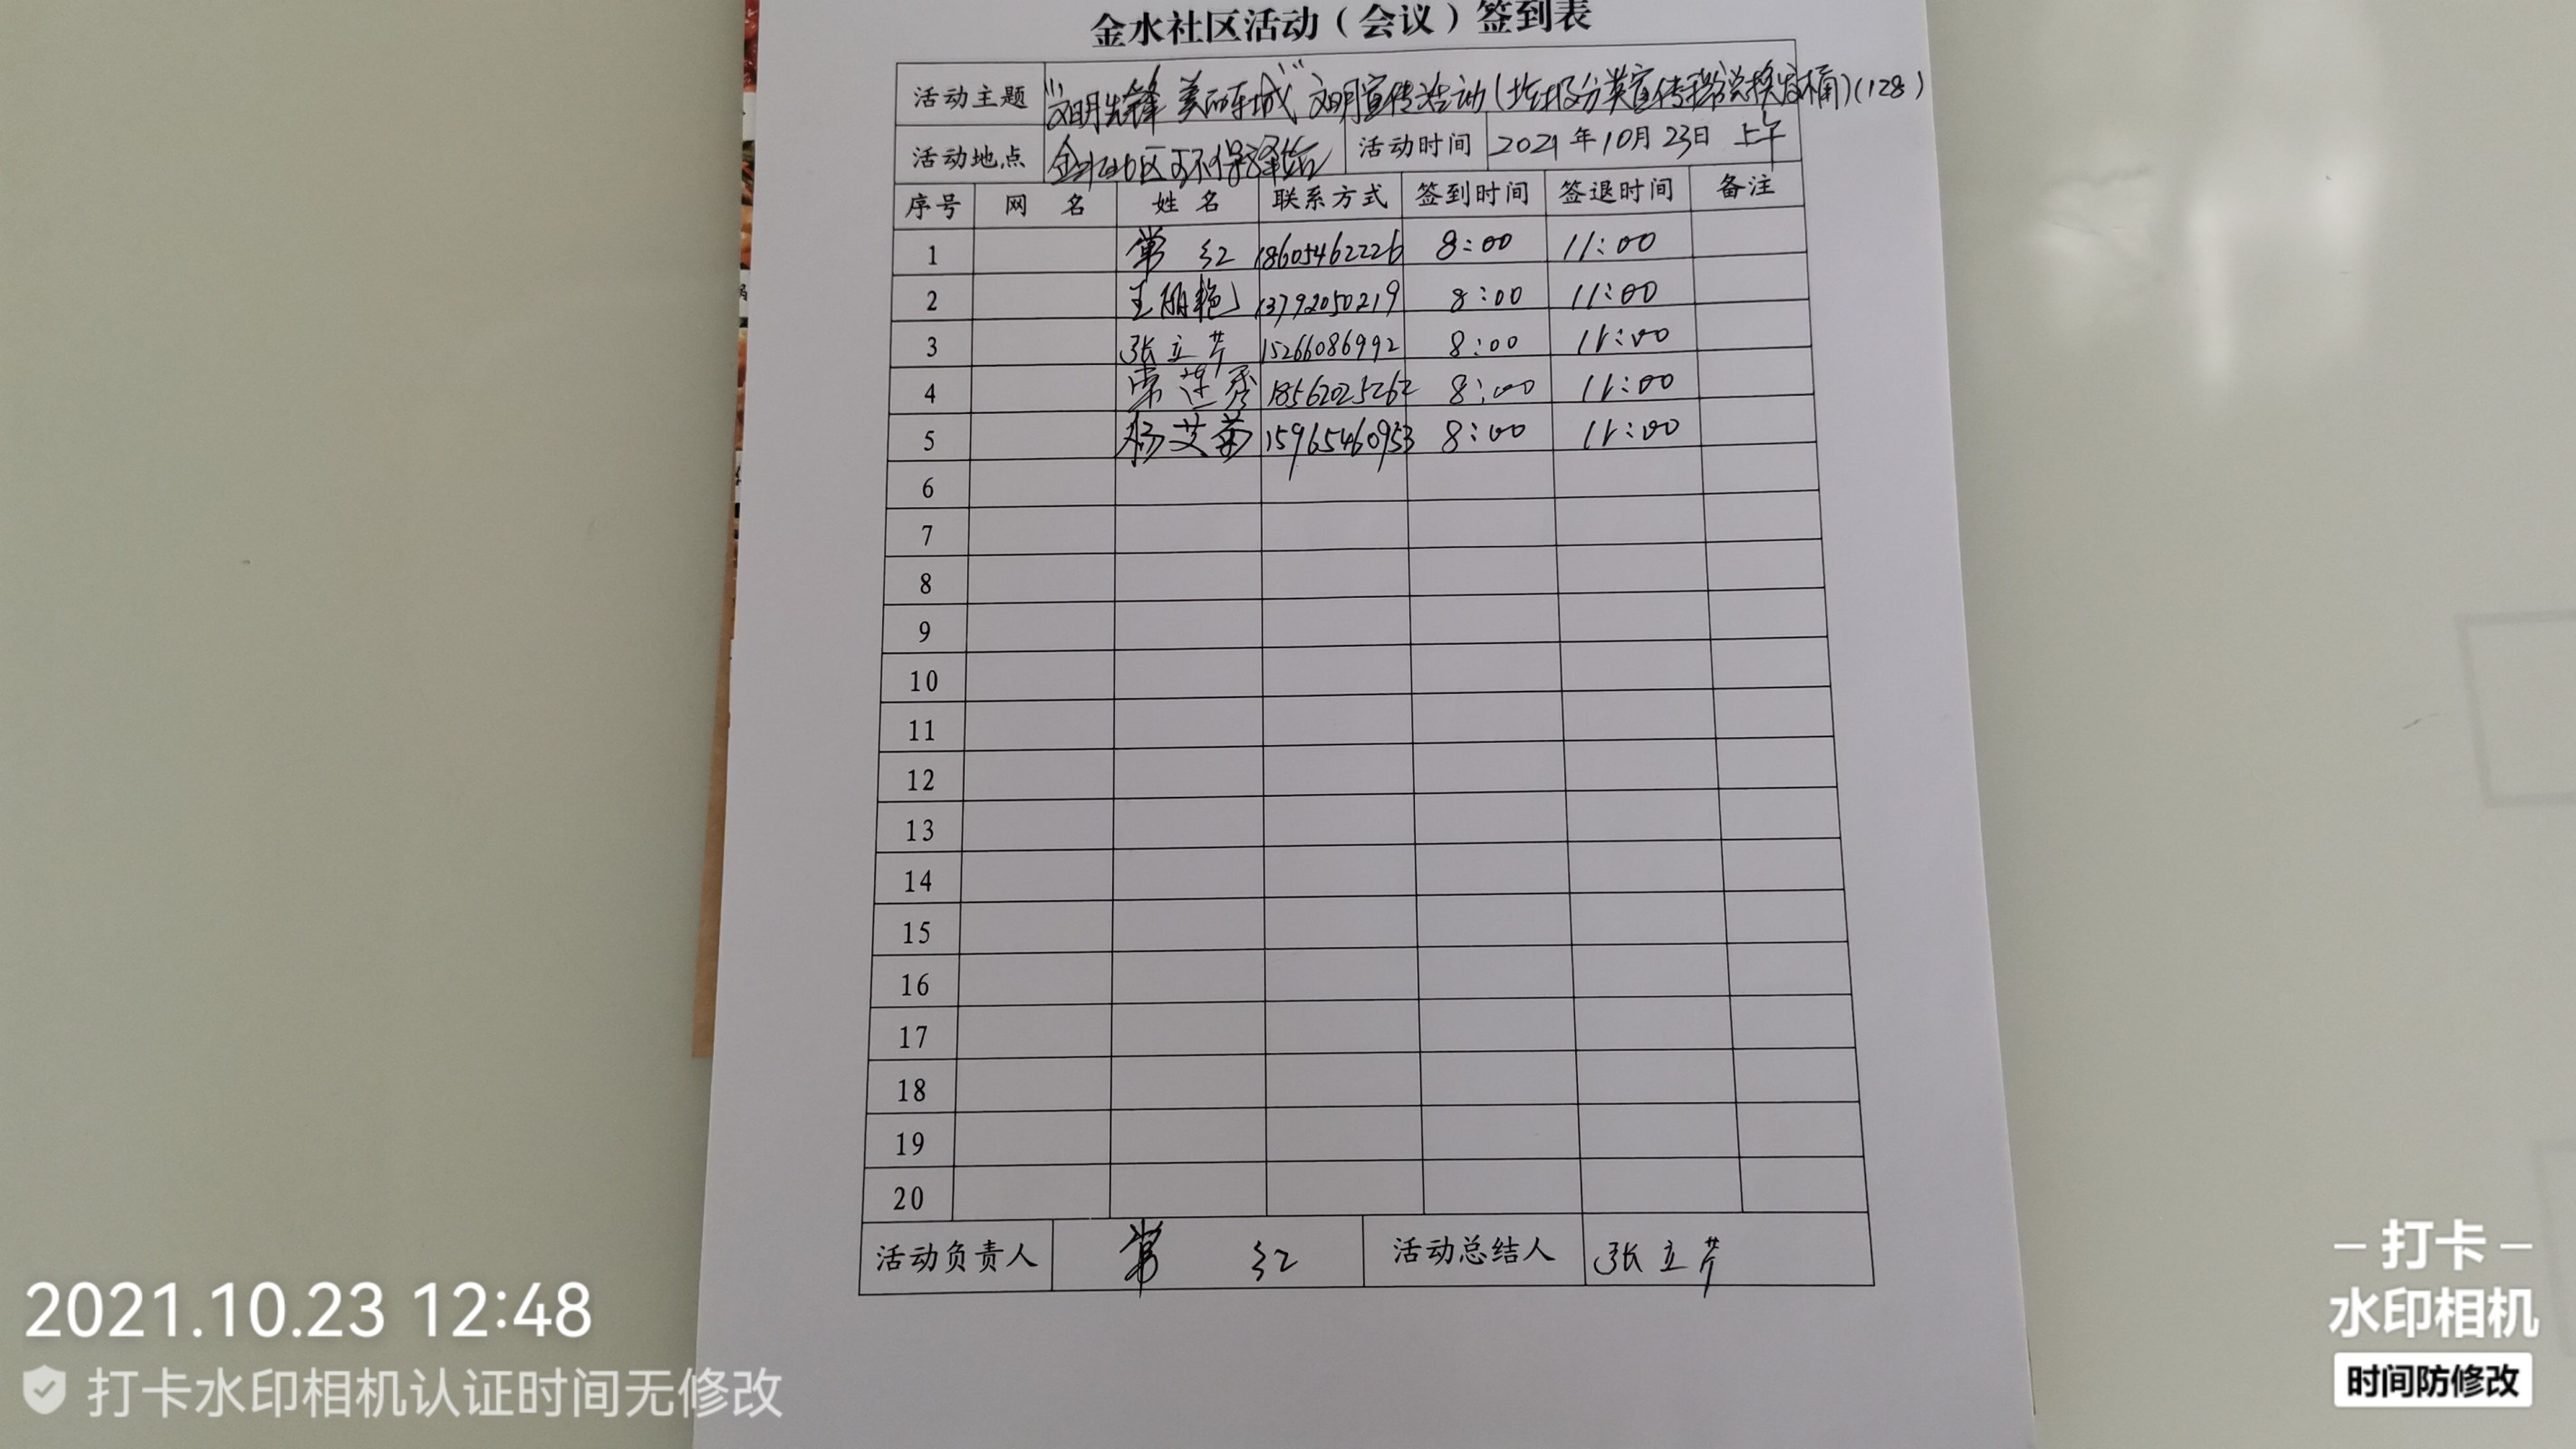 金水社区活动（会议）签到表
活动主题 "文明先锋 美丽东城" 文明宣传活动(垃圾分类宣传 换 桶)(128)
活动地点 金水社区环保 活动时间 2021年10月23日 上午
序号 网 名 姓 名 联系方式 签到时间 签退时间 备注
1 常 红 18605462226 8:00 11:00
2 王丽艳 13792050219 8:00 11:00
3 张立芹 15266086992 8:00 11:00
4 常莲秀 18562025262 8:00 11:00
5 杨艾菊 15965460953 8:00 11:00
6
7
8
9
10
11
12
13
14
15
16
17
18
19
20
活动负责人 常 红 活动总结人 张立芹
2021.10.23 12:48
打卡水印相机认证时间无修改
打卡
水印相机
时间防修改